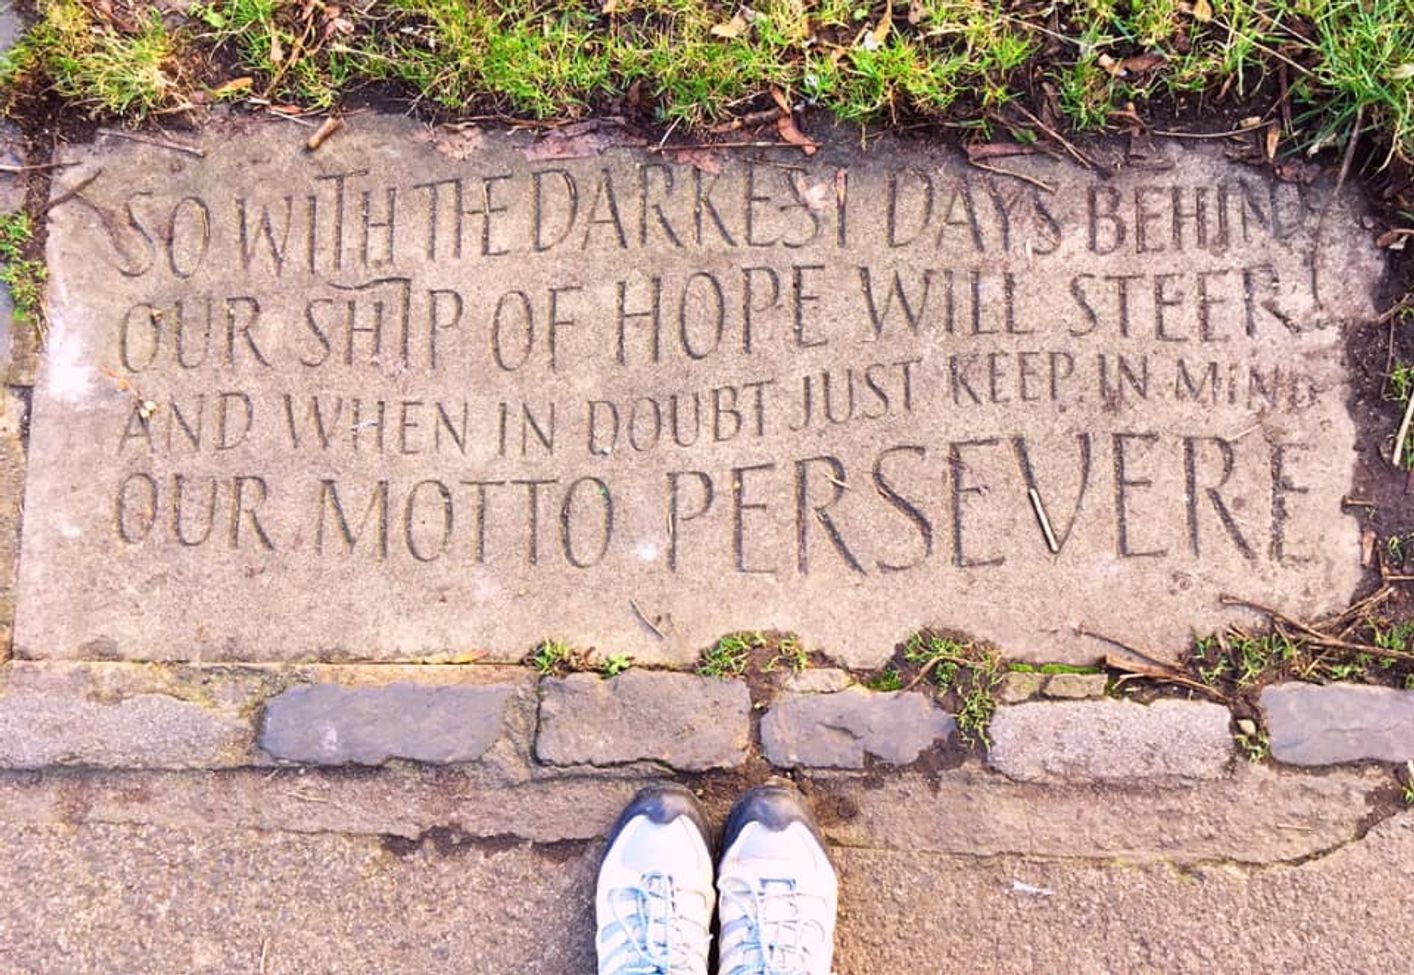 SO WITH THE DARKEST DAYS BEHIND
OUR SHIP OF HOPE WILL STEER
AND WHEN IN DOUBT JUST KEEP IN MIND
OUR MOTTO PERSEVERE